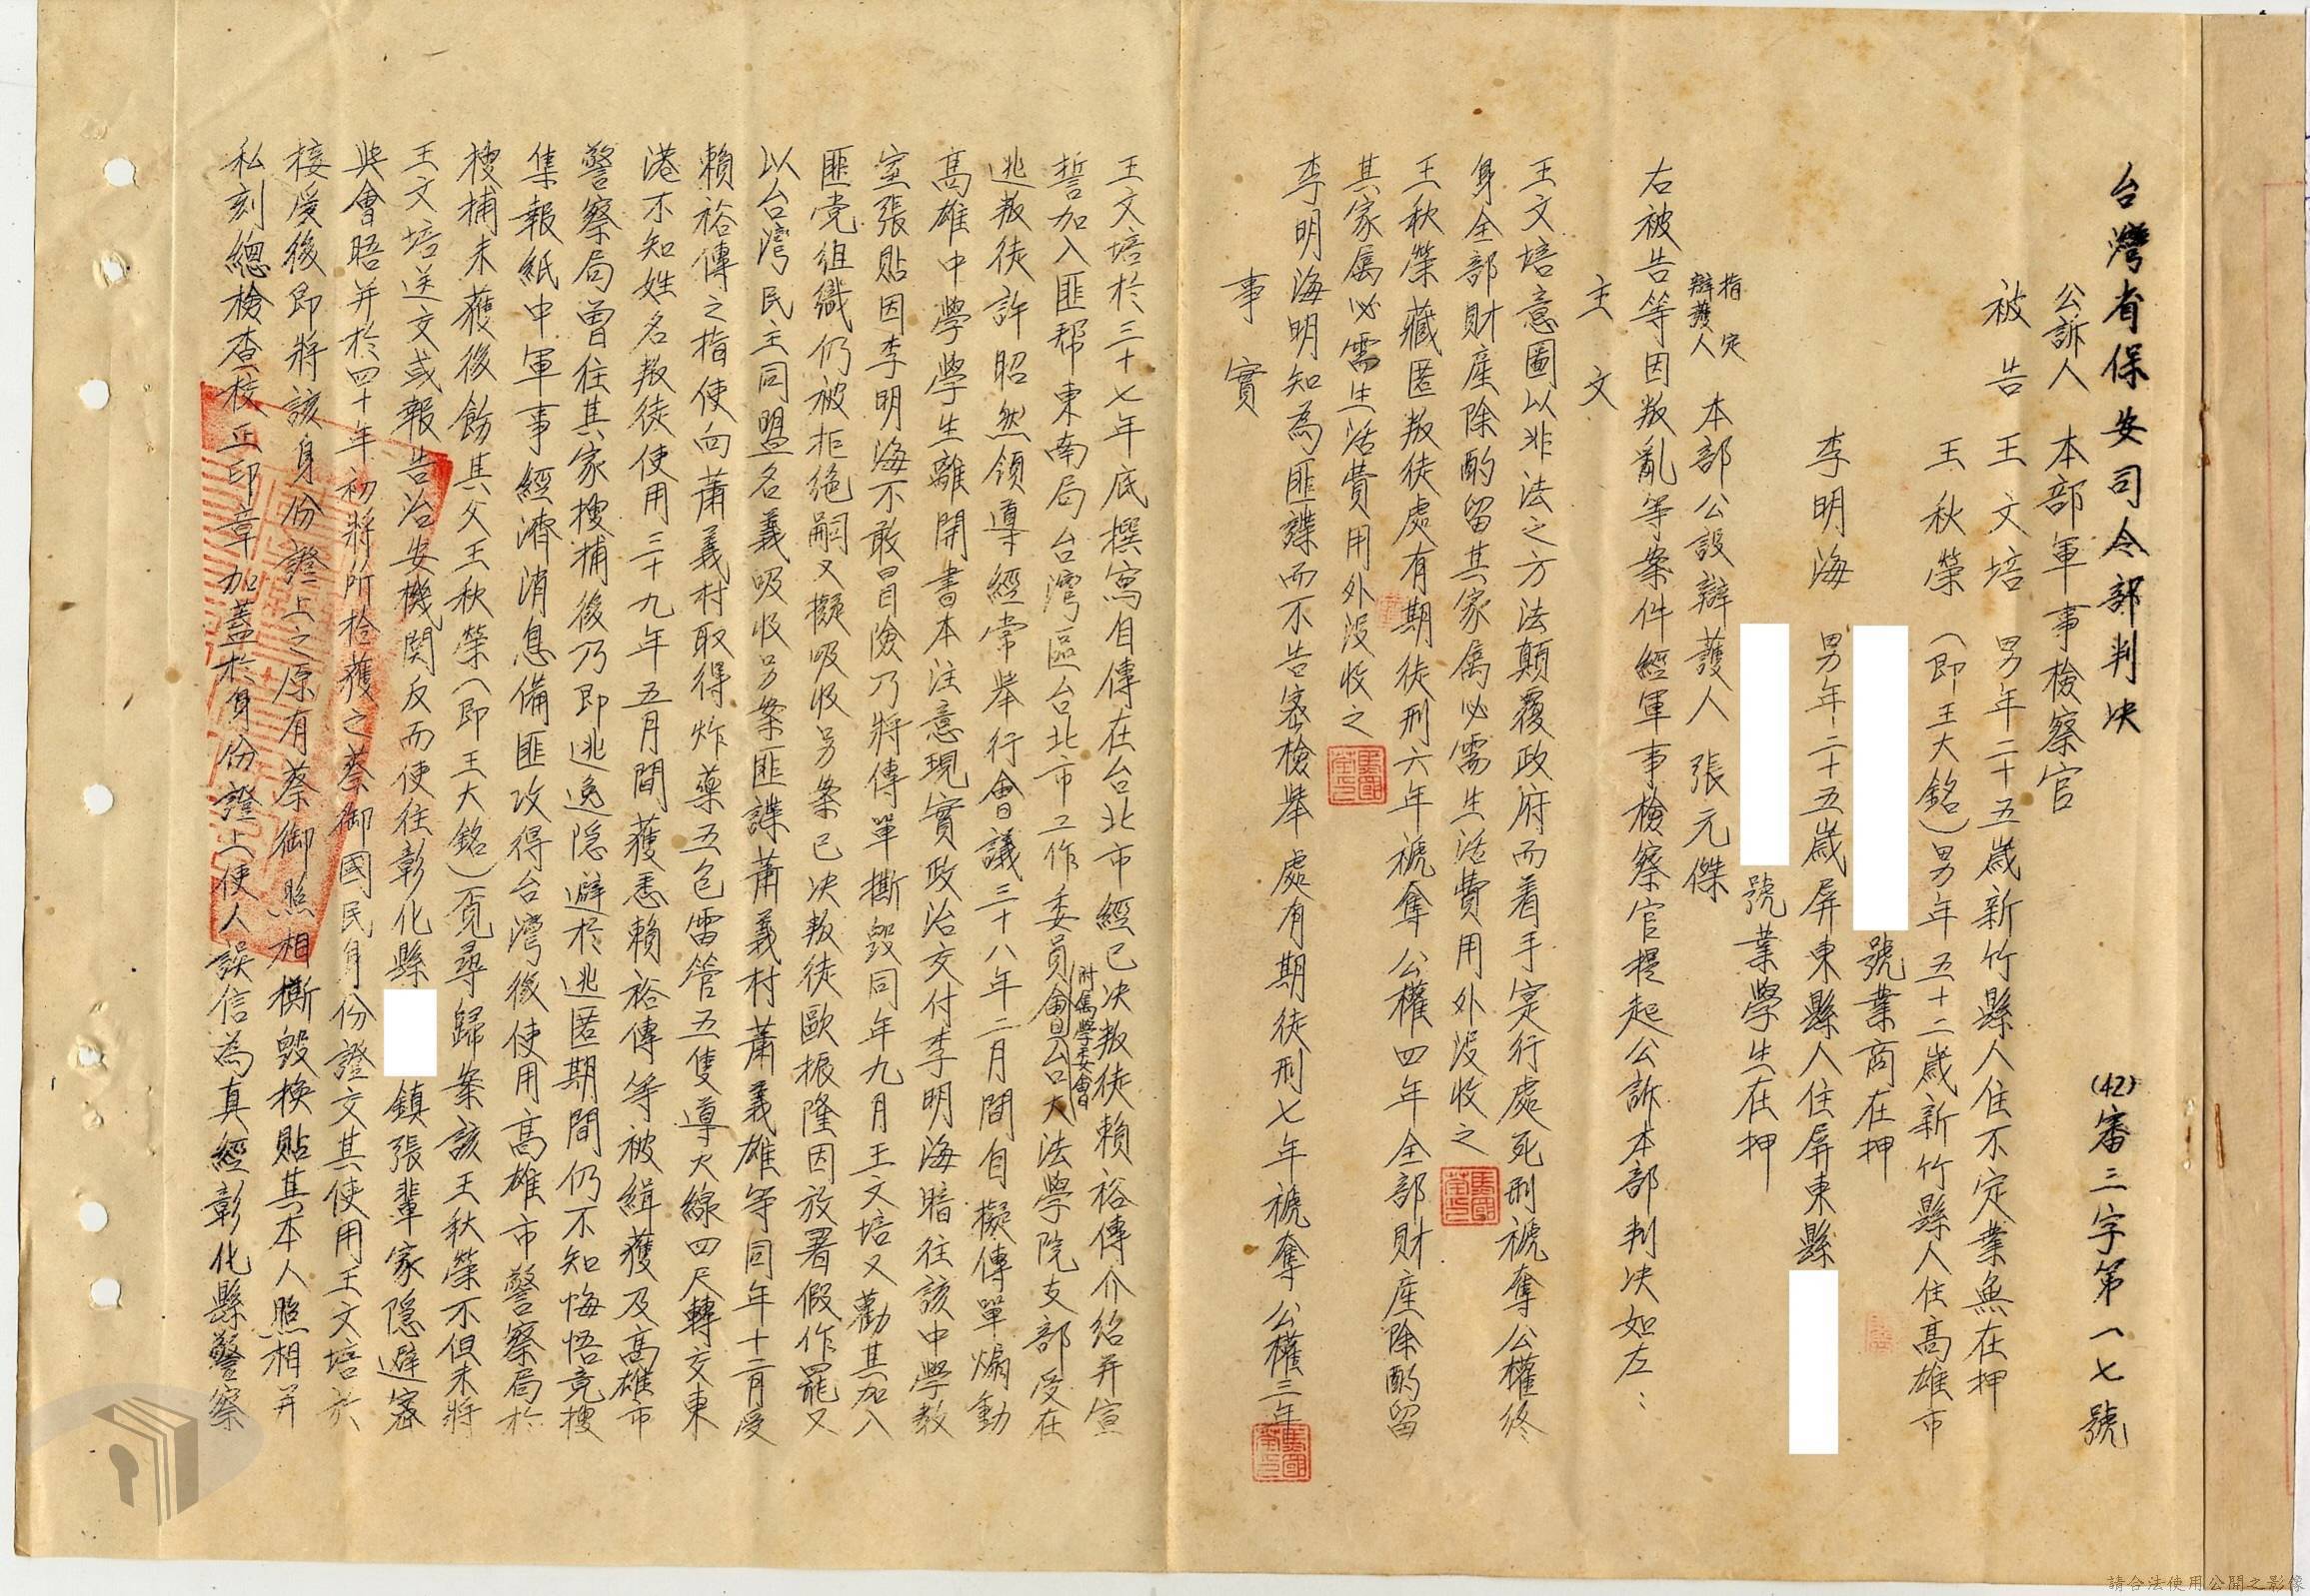 台灣省保安司令部判决
(42)審三字第一七號
公訴人　本部軍事檢察官
被告　王文培　男年二十五歲新竹縣人住不定業無在押
王秋榮（即王大銘）男年五十二歲新竹縣人住高雄市
號業商在押
李明海　男年二十五歲屏東縣人住屏東縣
號業學生在押
指定辯護人　本部公設辯護人　張元傑
右被告等因叛亂等案件經軍事檢察官提起公訴本部判决如左：
主文
王文培意圖以非法之方法顛覆政府而着手实行處死刑褫奪公權終
身全部財產除酌留其家属必需生活費用外沒收之
王秋榮藏匿叛徒處有期徒刑六年褫奪公權四年全部財產除酌留
其家属必需生活費用外沒收之
李明海明知為匪諜而不告密檢舉處有期徒刑七年褫奪公權三年
事實
王文培於三十七年底撰寫自傳在台北市經已决叛徒賴裕傳介紹并宣
誓加入匪帮東南局台灣區台北市工作委員會附属學委會台大法學院支部受在
逃叛徒許昭然領導經常舉行會議三十八年二月間自擬傳單煽動
高雄中學學生離開書本注意現實政治交付李明海暗往該中學教
室張貼因李明海不敢冒險乃將傳單撕毀同年九月王文培又勸其加入
匪党組織仍被拒絕嗣又擬吸收另案已决叛徒歐振隆因放暑假作罷又
以台灣民主同盟名義吸收另案匪諜蕭義村蕭義雄等同年十二月受
賴裕傳之指使向蕭義村取得炸藥五包雷管五隻導火線四尺轉交東
港不知姓名叛徒使用三十九年五月間獲悉賴裕傳等被緝獲及高雄市
警察局曾往其家搜捕後乃即逃逸隱避於逃匿期間仍不知悔悟竟搜
集報紙中軍事經濟消息備匪攻得台灣後使用高雄市警察局於
搜捕未獲後飭其父王秋榮（即王大銘）覓尋歸案該王秋榮不但未將
王文培送交或報告治安機関反而使往彰化縣　　鎮張輩家隱避密
與會晤并於四十年初將所拾獲之蔡御國民身份證交其使用王文培於
接受後即將該身份證上之原有蔡御照相撕毀換貼其本人照相并
私刻總檢查校正印章加蓋於身份證上使人誤信為真經彰化縣警察
請合法使用公開之影像